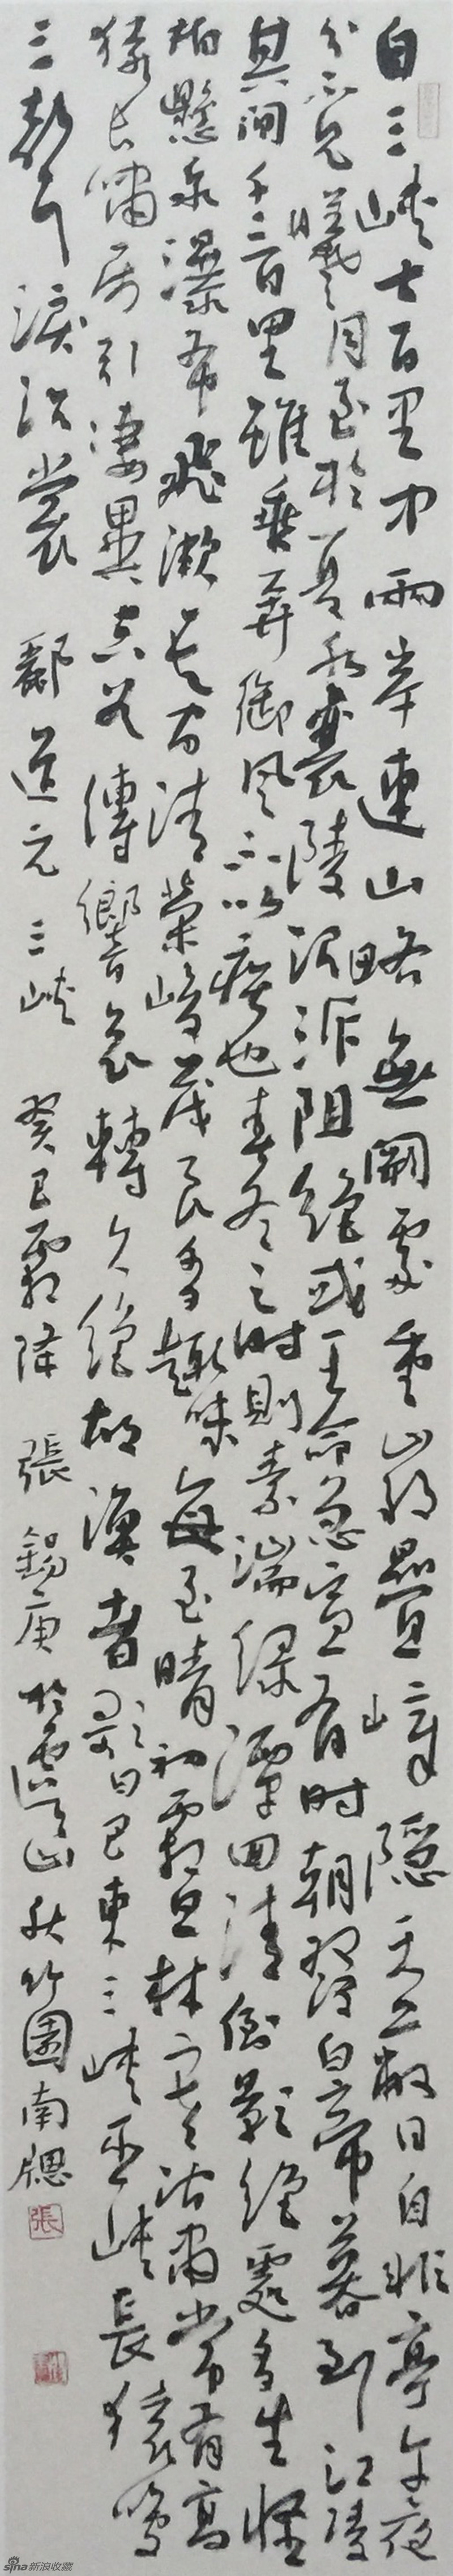 自三峡七百里中兩岸連山略無闕處重山[?]疊嶂隱天蔽日自非亭午夜
分不見曦月至於夏水襄陵沿泝阻絕或王命急宣有時朝發白帝暮到江陵
其間千二百里雖乘奔御風不以疾也春冬之時則素湍綠潭回清倒影絕巘多生怪
柏懸泉瀑布飛漱其間清榮峻茂良多趣味每至晴初霜旦林寒澗肅常有高
猿長嘯屬引淒異空谷傳響哀轉久絕故漁者歌曰巴東三峽巫峽長猿鳴
三聲淚沾裳 酈道元三峽 癸巳霜降 張錫庚於虞山秋竹園南牕
張
sina新浪收藏